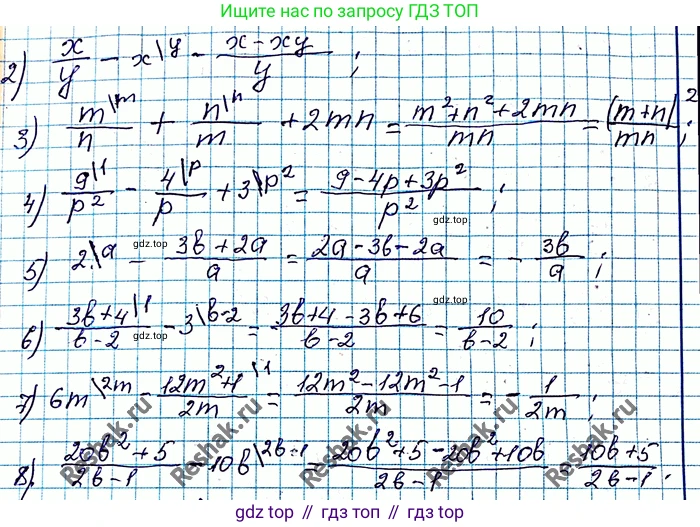 Ищите нас по запросу ГДЗ ТОП
2) x/y - x\y - (x-xy)/y ;
3) m\m/n + n\n/m + 2mn = (m²+n²+2mn)/mn = (m+n)²/mn ;
4) 9\1/p² - 4\p/p + 3\p² = (9-4p+3p²)/p² ;
gdz.top gdz.top gdz.top
5) 2\a - (3b+2a)/a = (2a-3b-2a)/a = - 3b/a ;
6) (3b+4)\1/(b-2) - 3\b-2 = (3b+4-3b+6)/(b-2) = 10/(b-2) ;
gdz.top gdz.top
7) 6m\2m - (12m²+1)\1/2m = (12m²-12m²-1)/2m = - 1/2m ;
8) (20b²+5)/(2b-1) - 10b\2b-1 = (20b²+5-20b²+10b)/(2b-1) = (10b+5)/(2b-1) ;
Reshak.ru Reshak.ru Reshak.ru
gdz top // гдз топ // gdz.top